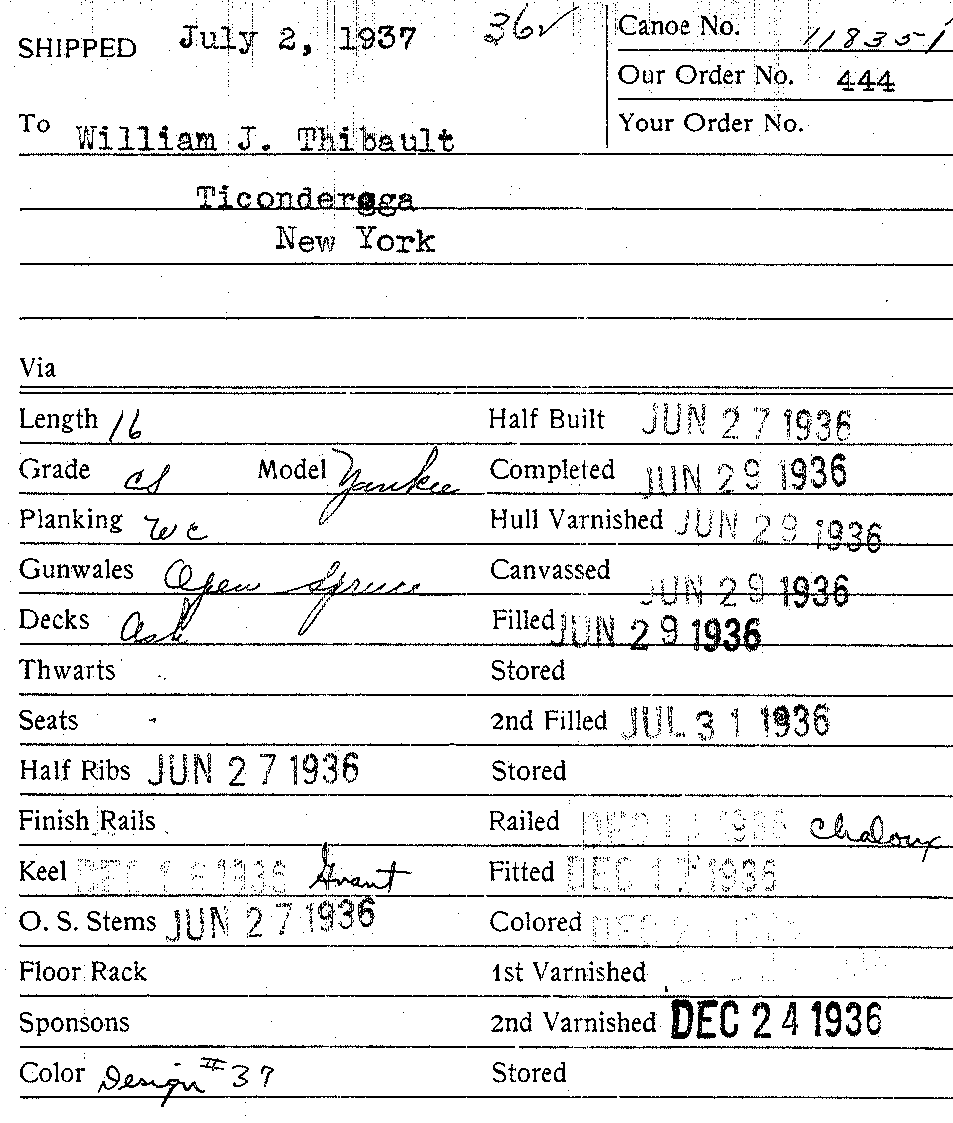 SHIPPED July 2, 1937 36✓ Canoe No. 118351
Our Order No. 444
To William J. Thibault Your Order No.
Ticonderoga
New York
Via
Length 16 Half Built JUN 27 1936
Grade CS Model Yankee Completed JUN 29 1936
Planking WC Hull Varnished JUN 29 1936
Gunwales Open Spruce Canvassed JUN 29 1936
Decks Ash Filled JUN 29 1936
Thwarts Stored
Seats 2nd Filled JUL 31 1936
Half Ribs JUN 27 1936 Stored
Finish Rails Railed DEC 1936 Chaloux
Keel DEC 1936 Grant Fitted DEC 17 1936
O. S. Stems JUN 27 1936 Colored DEC
Floor Rack 1st Varnished
Sponsons 2nd Varnished DEC 24 1936
Color Design #37 Stored